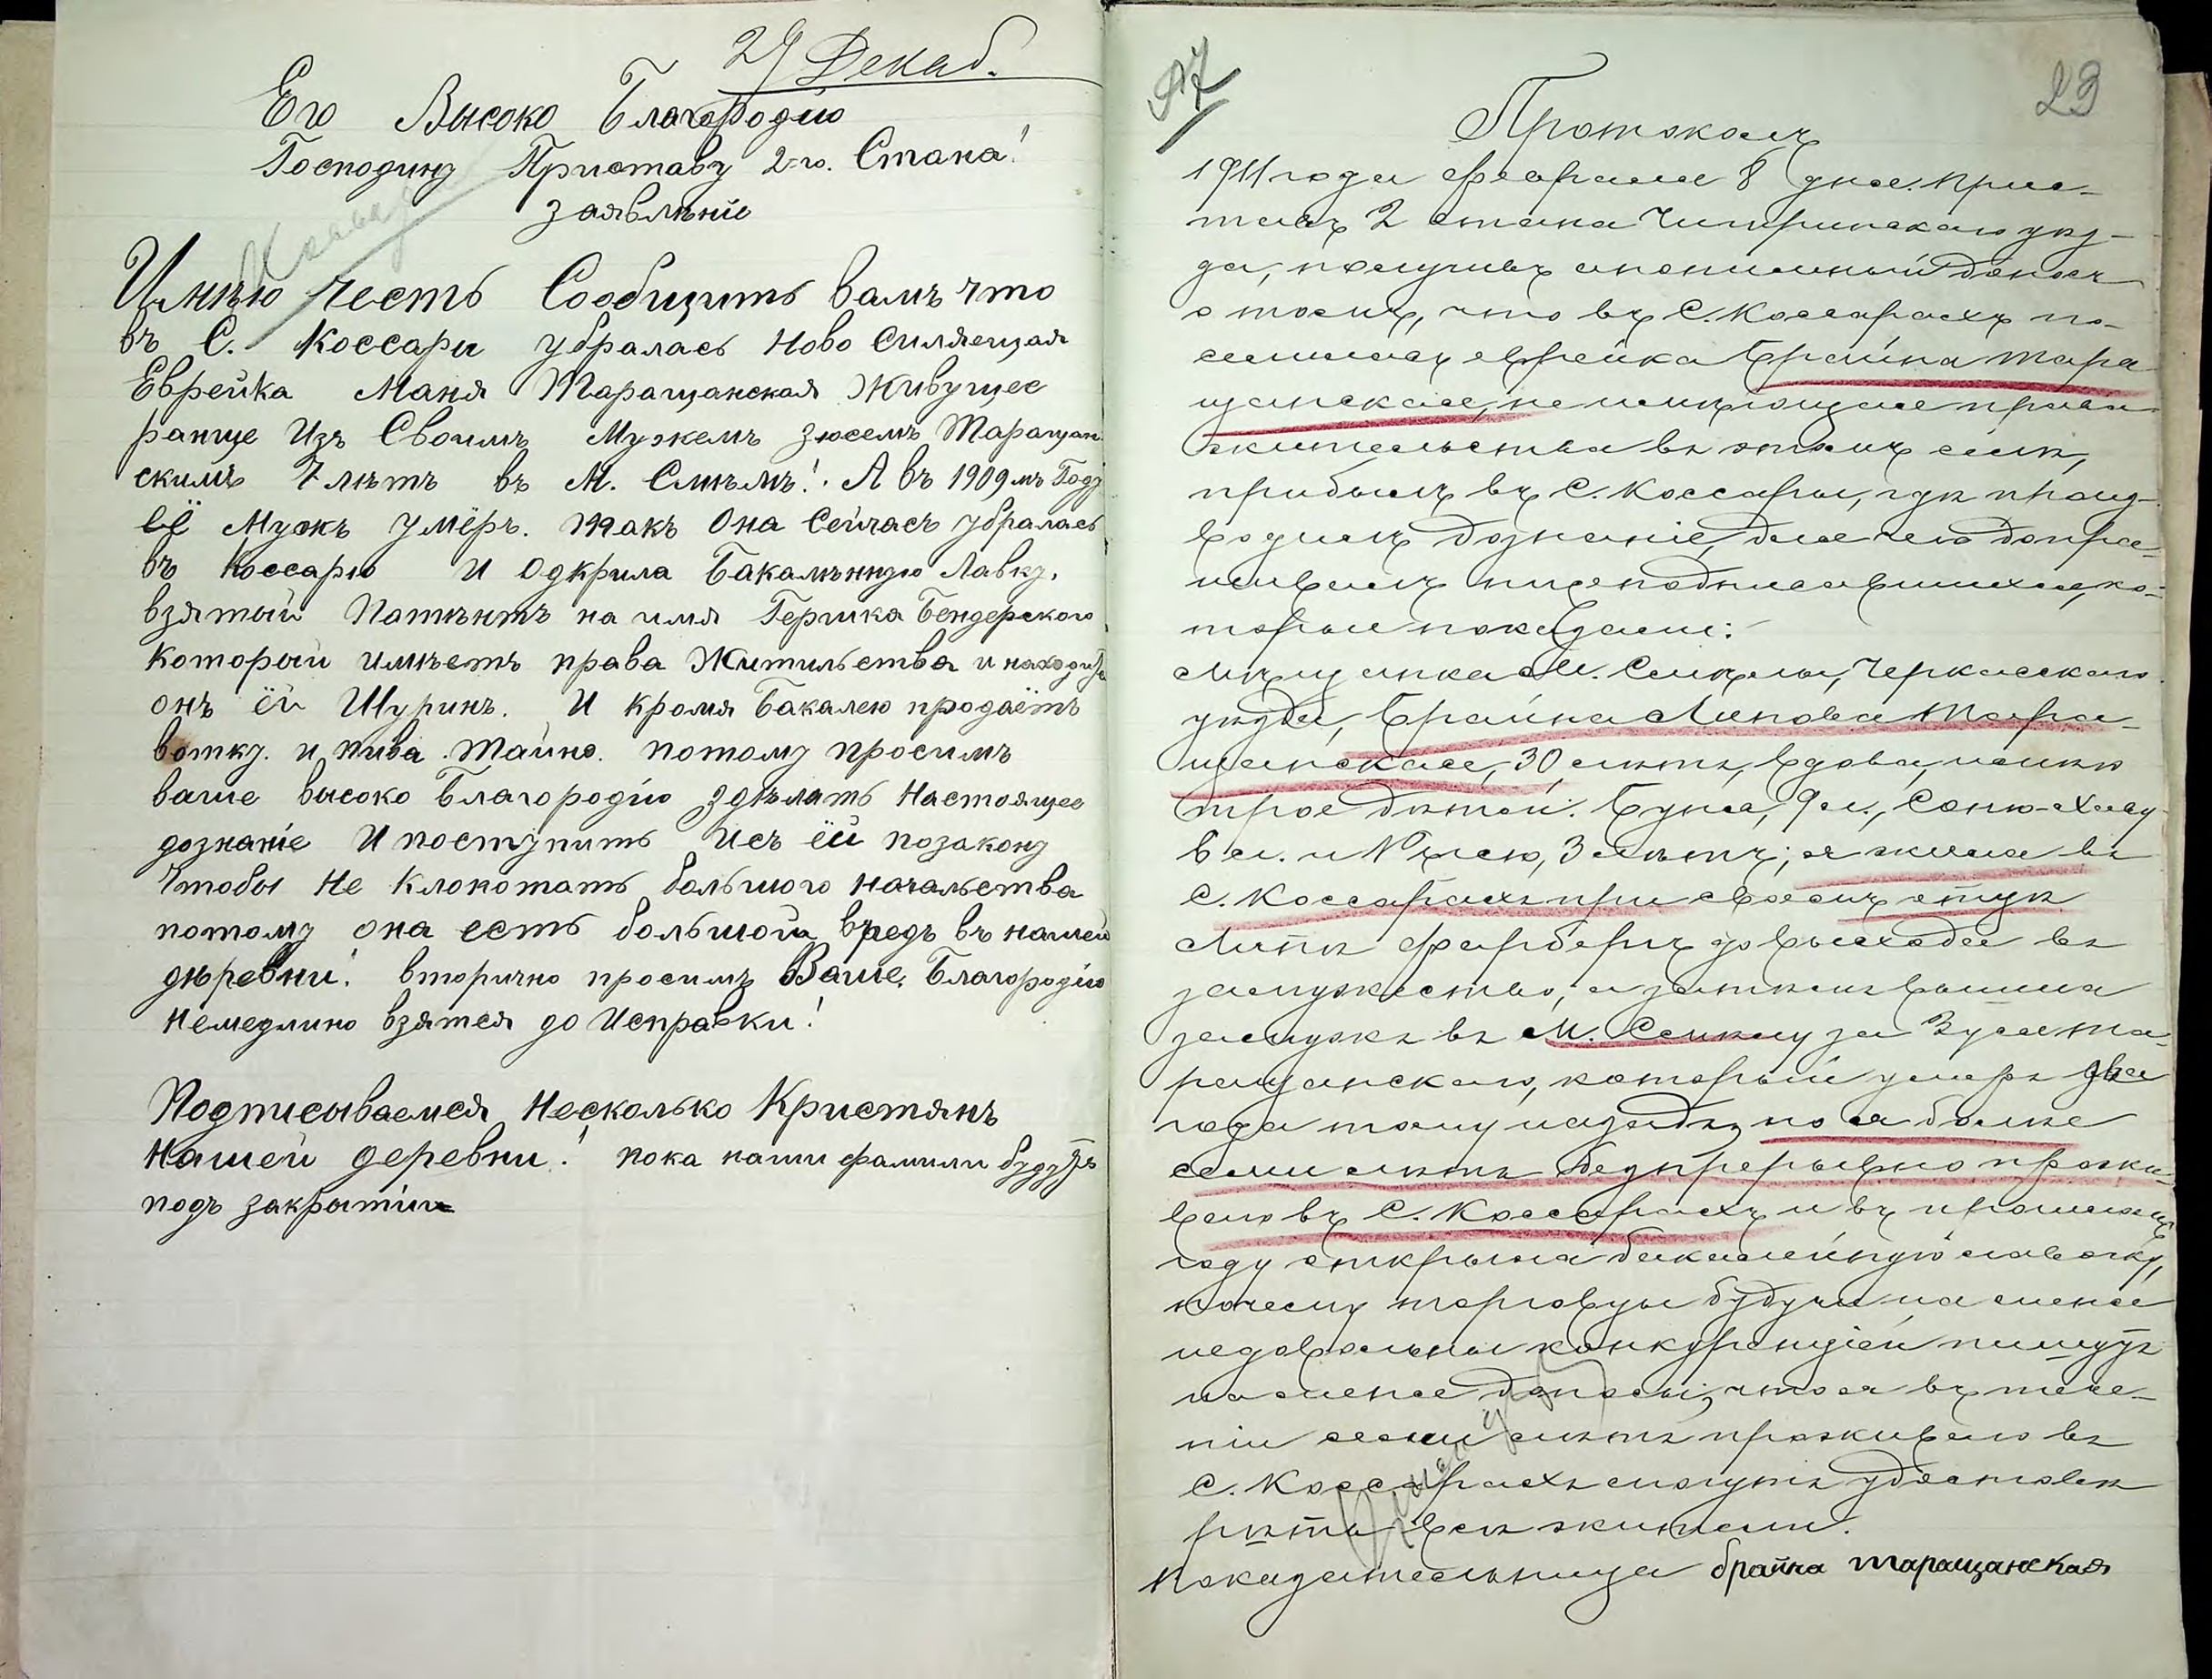 29 Декаб.
Его Высоко Благородію
Господину Приставу 2-го. Стана!
заявлѣніе
Имѣю честь Сообщить вамъ что
въ С. Коссары убралась Ново Силяещая
Еврейка Маня Таращанская Живущее
ранще Изъ Своимъ Мужемъ Зюсемъ Таращан
скимъ 7 лѣтъ въ М. Смѣлѣ!. А въ 1909мъ Году
её Мужъ умёръ. такъ Она Сейчасъ убралась
въ Коссарю И Одкрила Бакалѣнную Лавку.
взятый Патѣнтъ на имя Гершка Бендерского
который имѣетъ права Жительства и находитъ
онъ ёй Шуринъ. И кромя Бакалею продаётъ
вотку. и пива тайно. потому просимъ
ваше высоко Благородію здѣлать Настоящее
дознаніе И поступить исъ ёй позакону
Чтобы Не Клопотать большого начальства
потому она есть большой вредъ въ нашей
дѣревни! вторично просимъ Ваше. Благородію
Немедлино взятся до Исправки!
Подписываемся Несколько Кристянъ
Нашей деревни! пока наши фамили будутъ
подъ закрытіи
97
23
Протоколъ
1911 года февраля 8 дня. Прис-
тавъ 2 стана Чигиринскаго уѣз-
да, получивъ анонимный доносъ
о томъ, что въ С. Коссарахъ по-
селилась еврейка Брайна Тара
щанская, не имѣющая права
жительства въ этомъ селѣ,
прибылъ въ С. Коссары, гдѣ произ-
водилъ дознаніе, для чего допра-
шивалъ нижеподписавшихся, ко-
торые показали:
Мѣщанка М. Смѣлы, Черкасскаго
уѣзда, Брайна Липова Тара-
щанская, 30 лѣтъ, вдова, имѣю
трое дѣтей: 9 л.,
6 л. и 3 лѣтъ; я жила въ
С. Коссарахъ при своемъ отцѣ
Липѣ Фарберъ до выхода въ
замужество, а затѣмъ вышла
замужъ въ М. Смѣлу за Зуся Та-
ращанскаго, который умеръ два
года тому назадъ, но я болѣе
семи лѣтъ безпрерывно прожи-
ваю въ С. Коссарахъ и въ прошломъ
году открыла бакалейную лавочку,
почему торговцы будучи на меня
недовольны конкуренціей пишутъ
на меня доносы, что я въ тече-
ніи семи лѣтъ проживаю въ
С. Коссарахъ могутъ удостовѣ
рить всѣ жители.
Показательница брайна таращанская